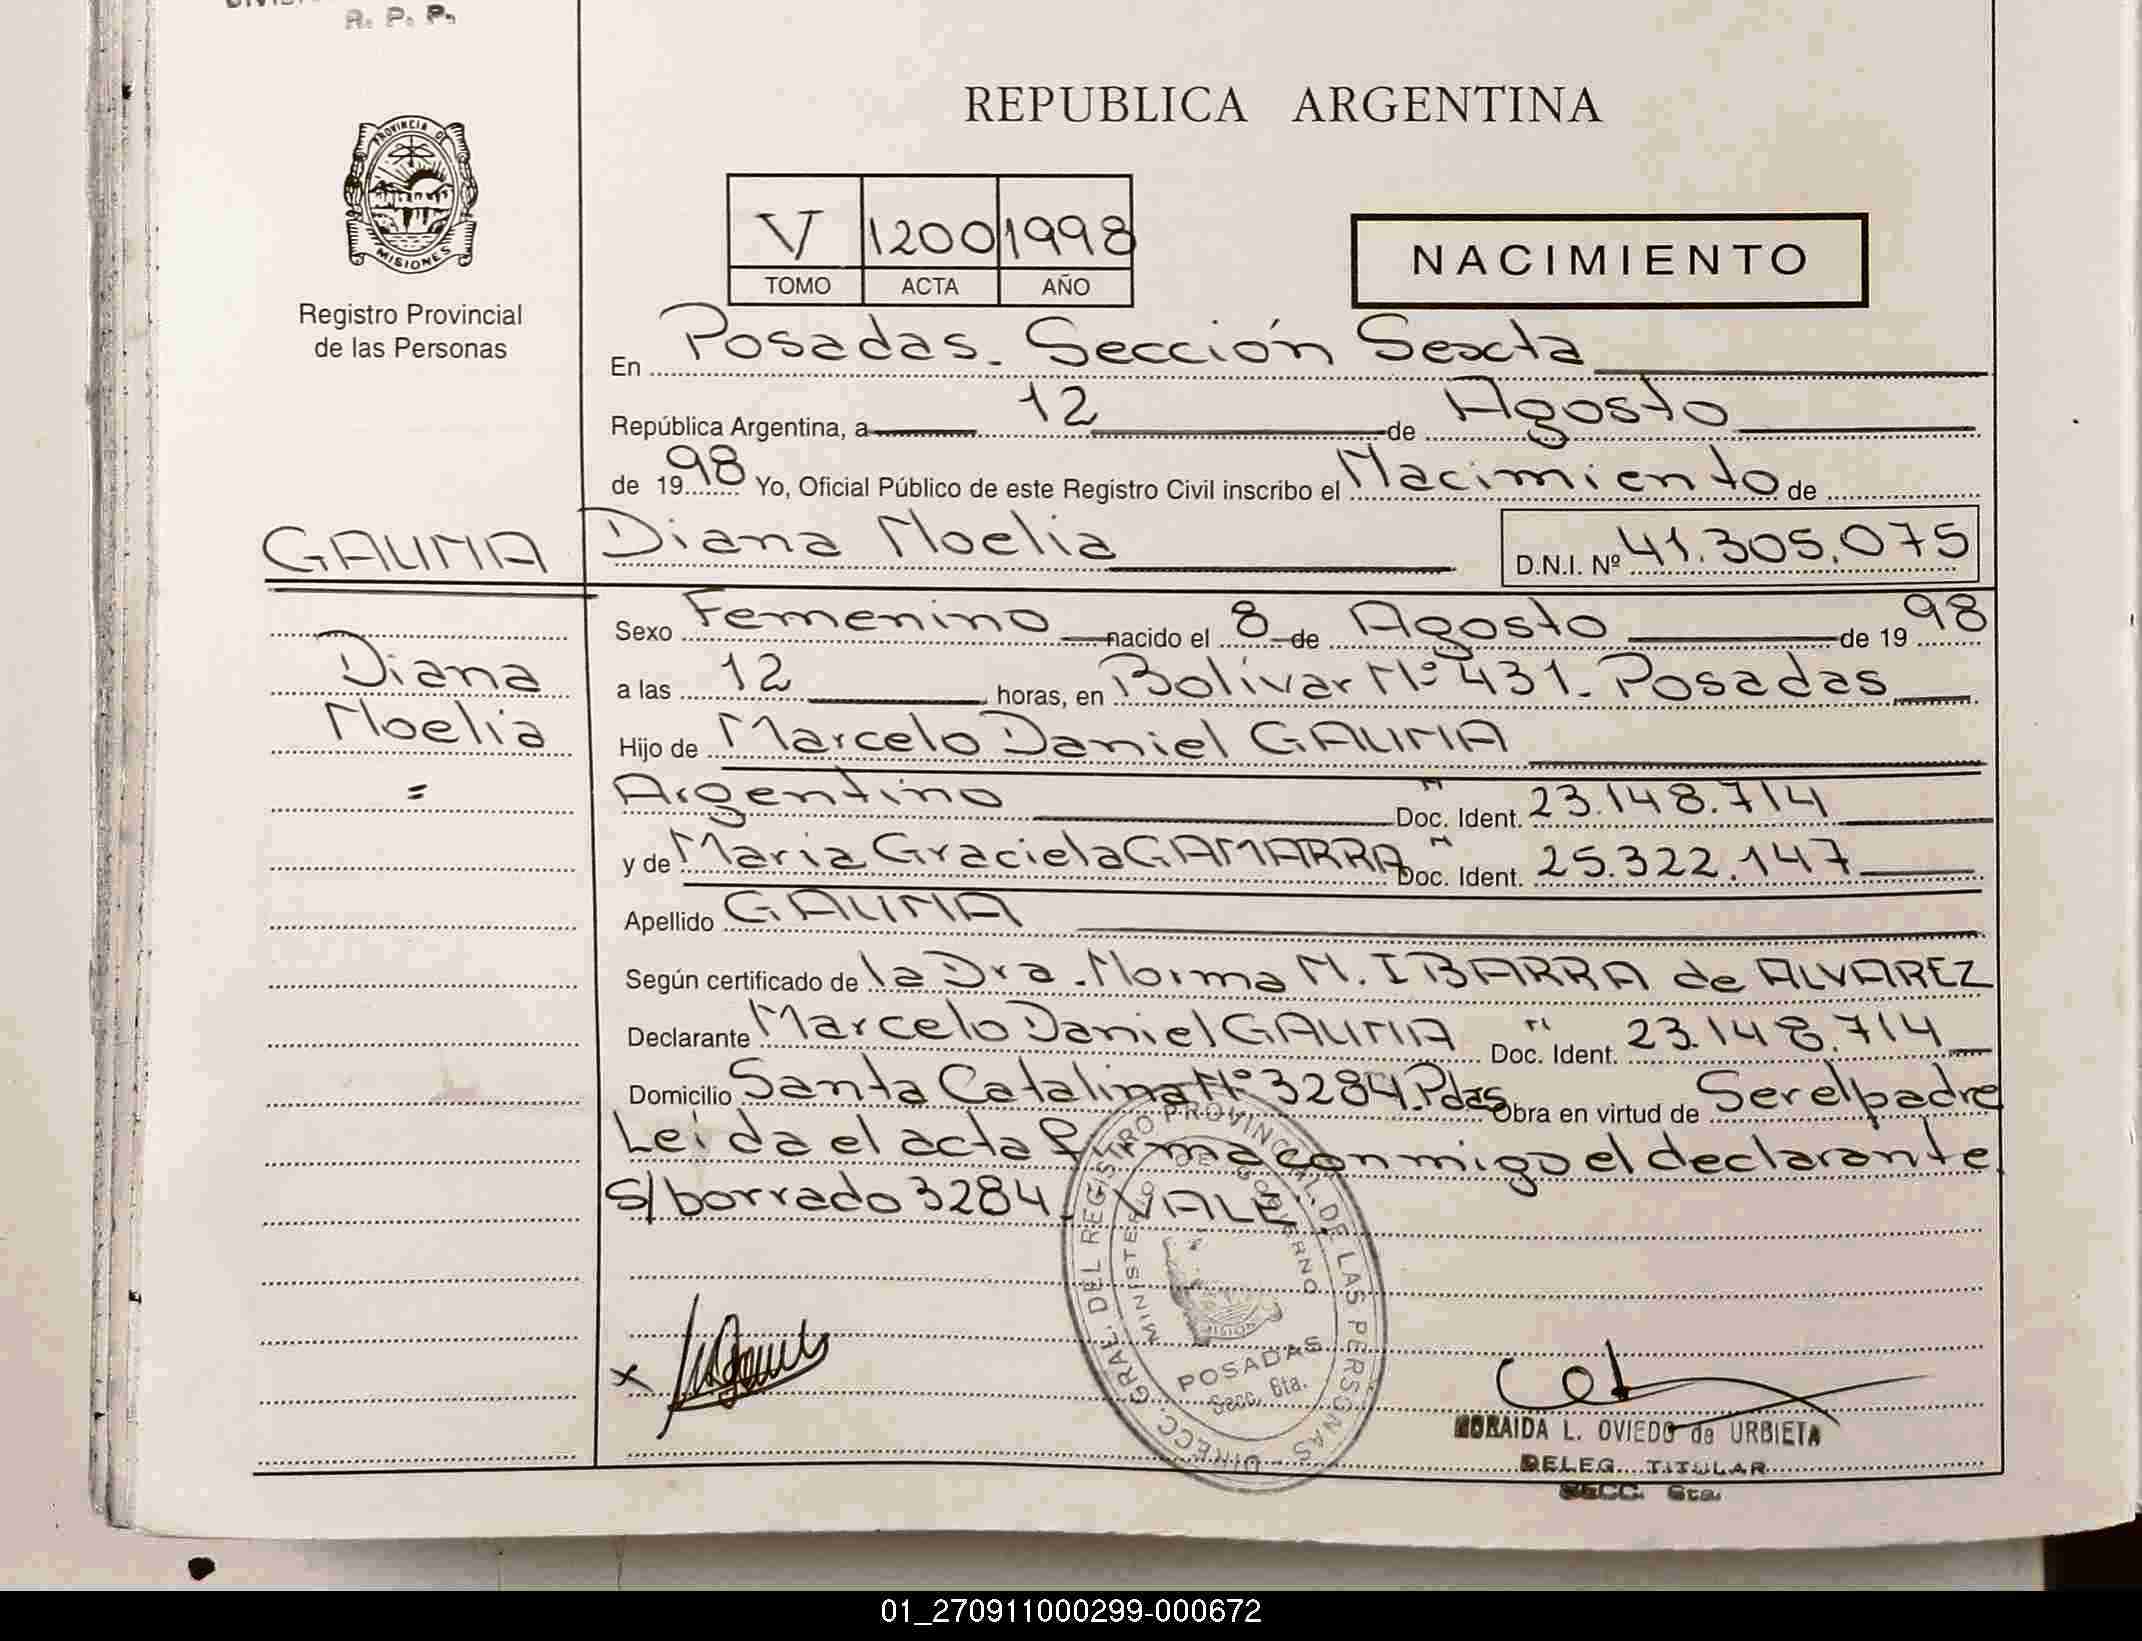 R. P. P.
PROVINCIA DE
MISIONES
Registro Provincial
de las Personas
REPUBLICA ARGENTINA
V 1200 1998
TOMO ACTA AÑO
NACIMIENTO
En Posadas. Sección Sexta
República Argentina, a 12 de Agosto
de 1998 Yo, Oficial Público de este Registro Civil inscribo el Nacimiento de
GAUNA Diana Noelia D.N.I. Nº 41.305.075
Diana
Noelia
=
Sexo Femenino nacido el 8 de Agosto de 1998
a las 12 horas, en Bolívar Nº 431. Posadas
Hijo de Marcelo Daniel GAUNA
Argentino Doc. Ident. 23.148.714
y de Maria Graciela GAMARRA Doc. Ident. 25.322.147
Apellido GAUNA
Según certificado de la Dra. Norma N. IBARRA de ALVAREZ
Declarante Marcelo Daniel GAUNA Doc. Ident. 23.148.714
Domicilio Santa Catalina Nº 3284. Pdas Obra en virtud de Ser el padre
Leída el acta firma conmigo el declarante
s/borrado 3284. VALE
DIRECC. GRAL. DEL REGISTRO PROVINCIAL DE LAS PERSONAS
MINISTERIO DE GOBIERNO
POSADAS
Secc. 6ta.
x
NORAIDA L. OVIEDO de URBIETA
DELEG. TITULAR
SECC. 6ta.
01_270911000299-000672